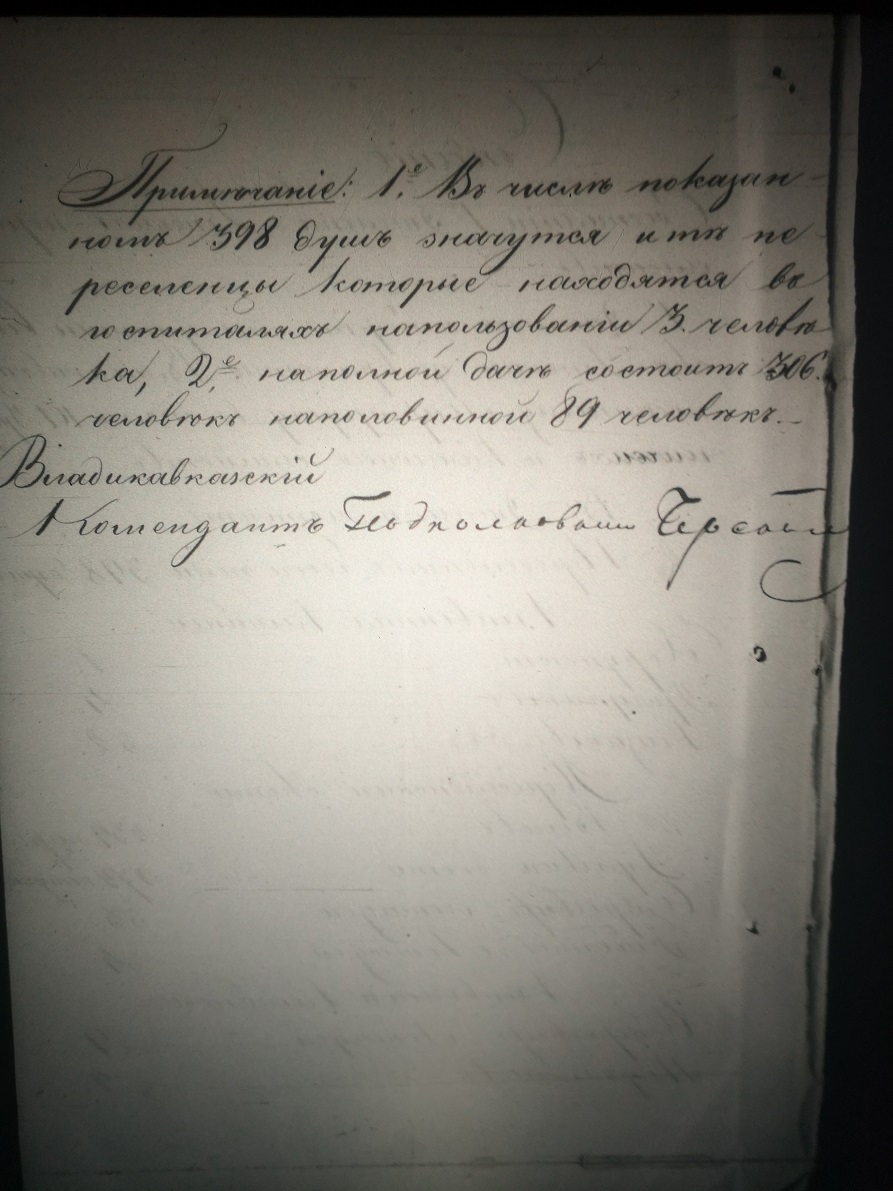 Примѣчаніе: 1.е Въ числѣ показан
номъ 398 душъ значутся и тѣ пе
реселенцы которые находятся въ
госпиталяхъ напользованіи 3. человѣ
ка, 2.е наполной дачѣ состоитъ 306.
человѣкъ наполовинной 89 человѣкъ.
Владикавказскій
Комендантъ Подполковникъ